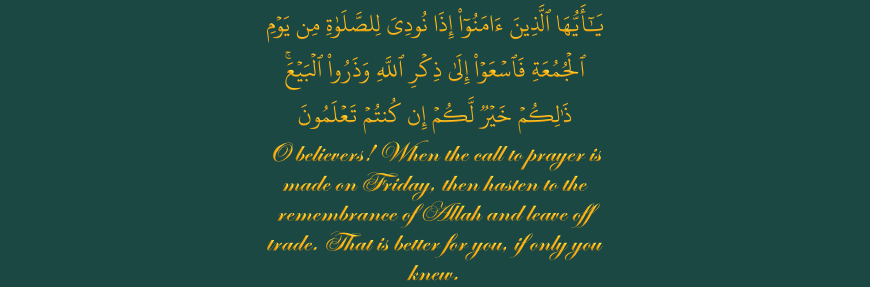 يَـٰٓأَيُّهَا ٱلَّذِينَ ءَامَنُوٓا۟ إِذَا نُودِىَ لِلصَّلَوٰةِ مِن يَوْمِ
ٱلْجُمُعَةِ فَٱسْعَوْا۟ إِلَىٰ ذِكْرِ ٱللَّهِ وَذَرُوا۟ ٱلْبَيْعَ ۚ
ذَٰلِكُمْ خَيْرٌ لَّكُمْ إِن كُنتُمْ تَعْلَمُونَ
O believers! When the call to prayer is
made on Friday, then hasten to the
remembrance of Allah and leave off
trade. That is better for you, if only you
knew.